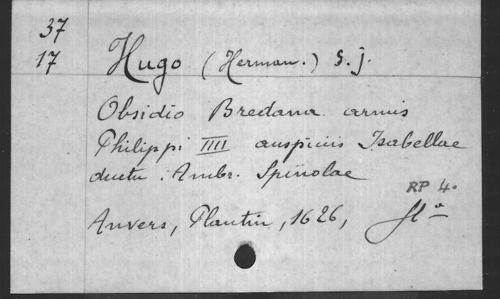 37
17 Hugo (Herman.) S. j.
Obsidio Bredana armis
Philippi IIII auspiciis Isabellae
ductu . Ambr. Spinolae
RP 4.
Anvers, Plantin, 1626, fl°